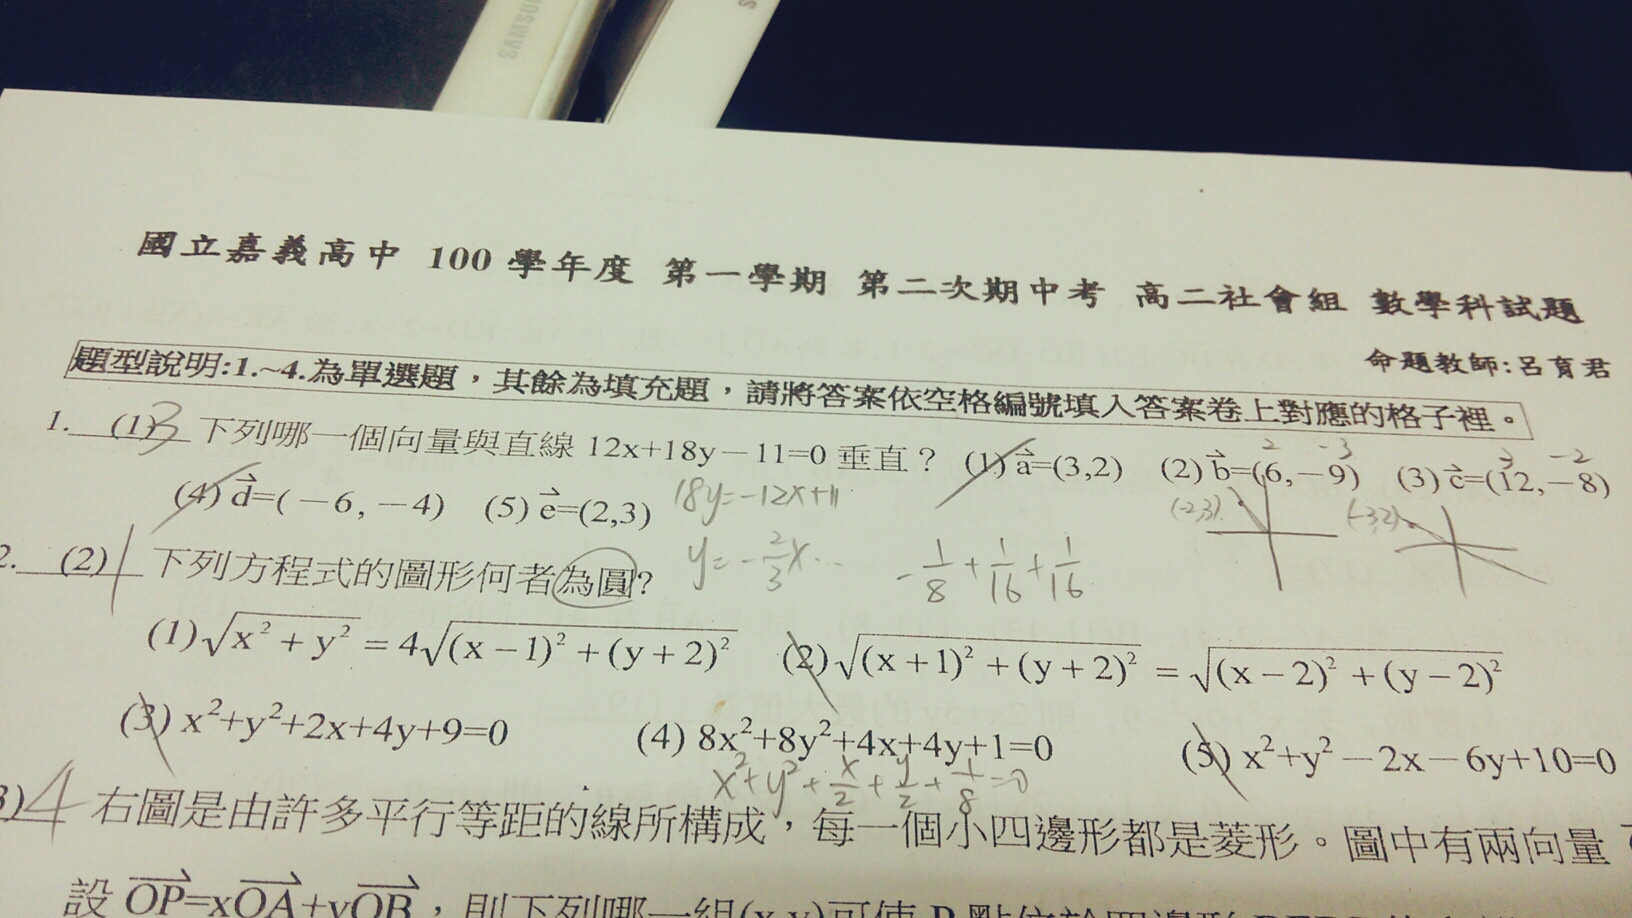 SAMSUNG
S
國立嘉義高中 100 學年度 第一學期 第二次期中考 高二社會組 數學科試題
命題教師:呂育君
題型說明:1.~4.為單選題,其餘為填充題,請將答案依空格編號填入答案卷上對應的格子裡。
2 -3 3 -2
1. (1) 3 下列哪一個向量與直線 12x+18y-11=0 垂直? (1) a⃗=(3,2) (2) b⃗=(6,-9) (3) c⃗=(12,-8)
(4) d⃗=(-6, -4) (5) e⃗=(2,3) 18y=-12x+11 (-2,3) (-3,2)
2. (2) 1 下列方程式的圖形何者為圓? y=-2/3x... -1/8+1/16+1/16
(1)√(x²+y²) = 4√((x-1)²+(y+2)²) (2)√((x+1)²+(y+2)²) = √((x-2)²+(y-2)²)
(3) x²+y²+2x+4y+9=0 (4) 8x²+8y²+4x+4y+1=0 (5) x²+y²-2x-6y+10=0
x²+y²+x/2+y/2+1/8=0
3) 4 右圖是由許多平行等距的線所構成,每一個小四邊形都是菱形。圖中有兩向量
設 OP⃗=xOA⃗+yOB⃗,則下列哪一組(x,y)可使 P 點位於四邊形